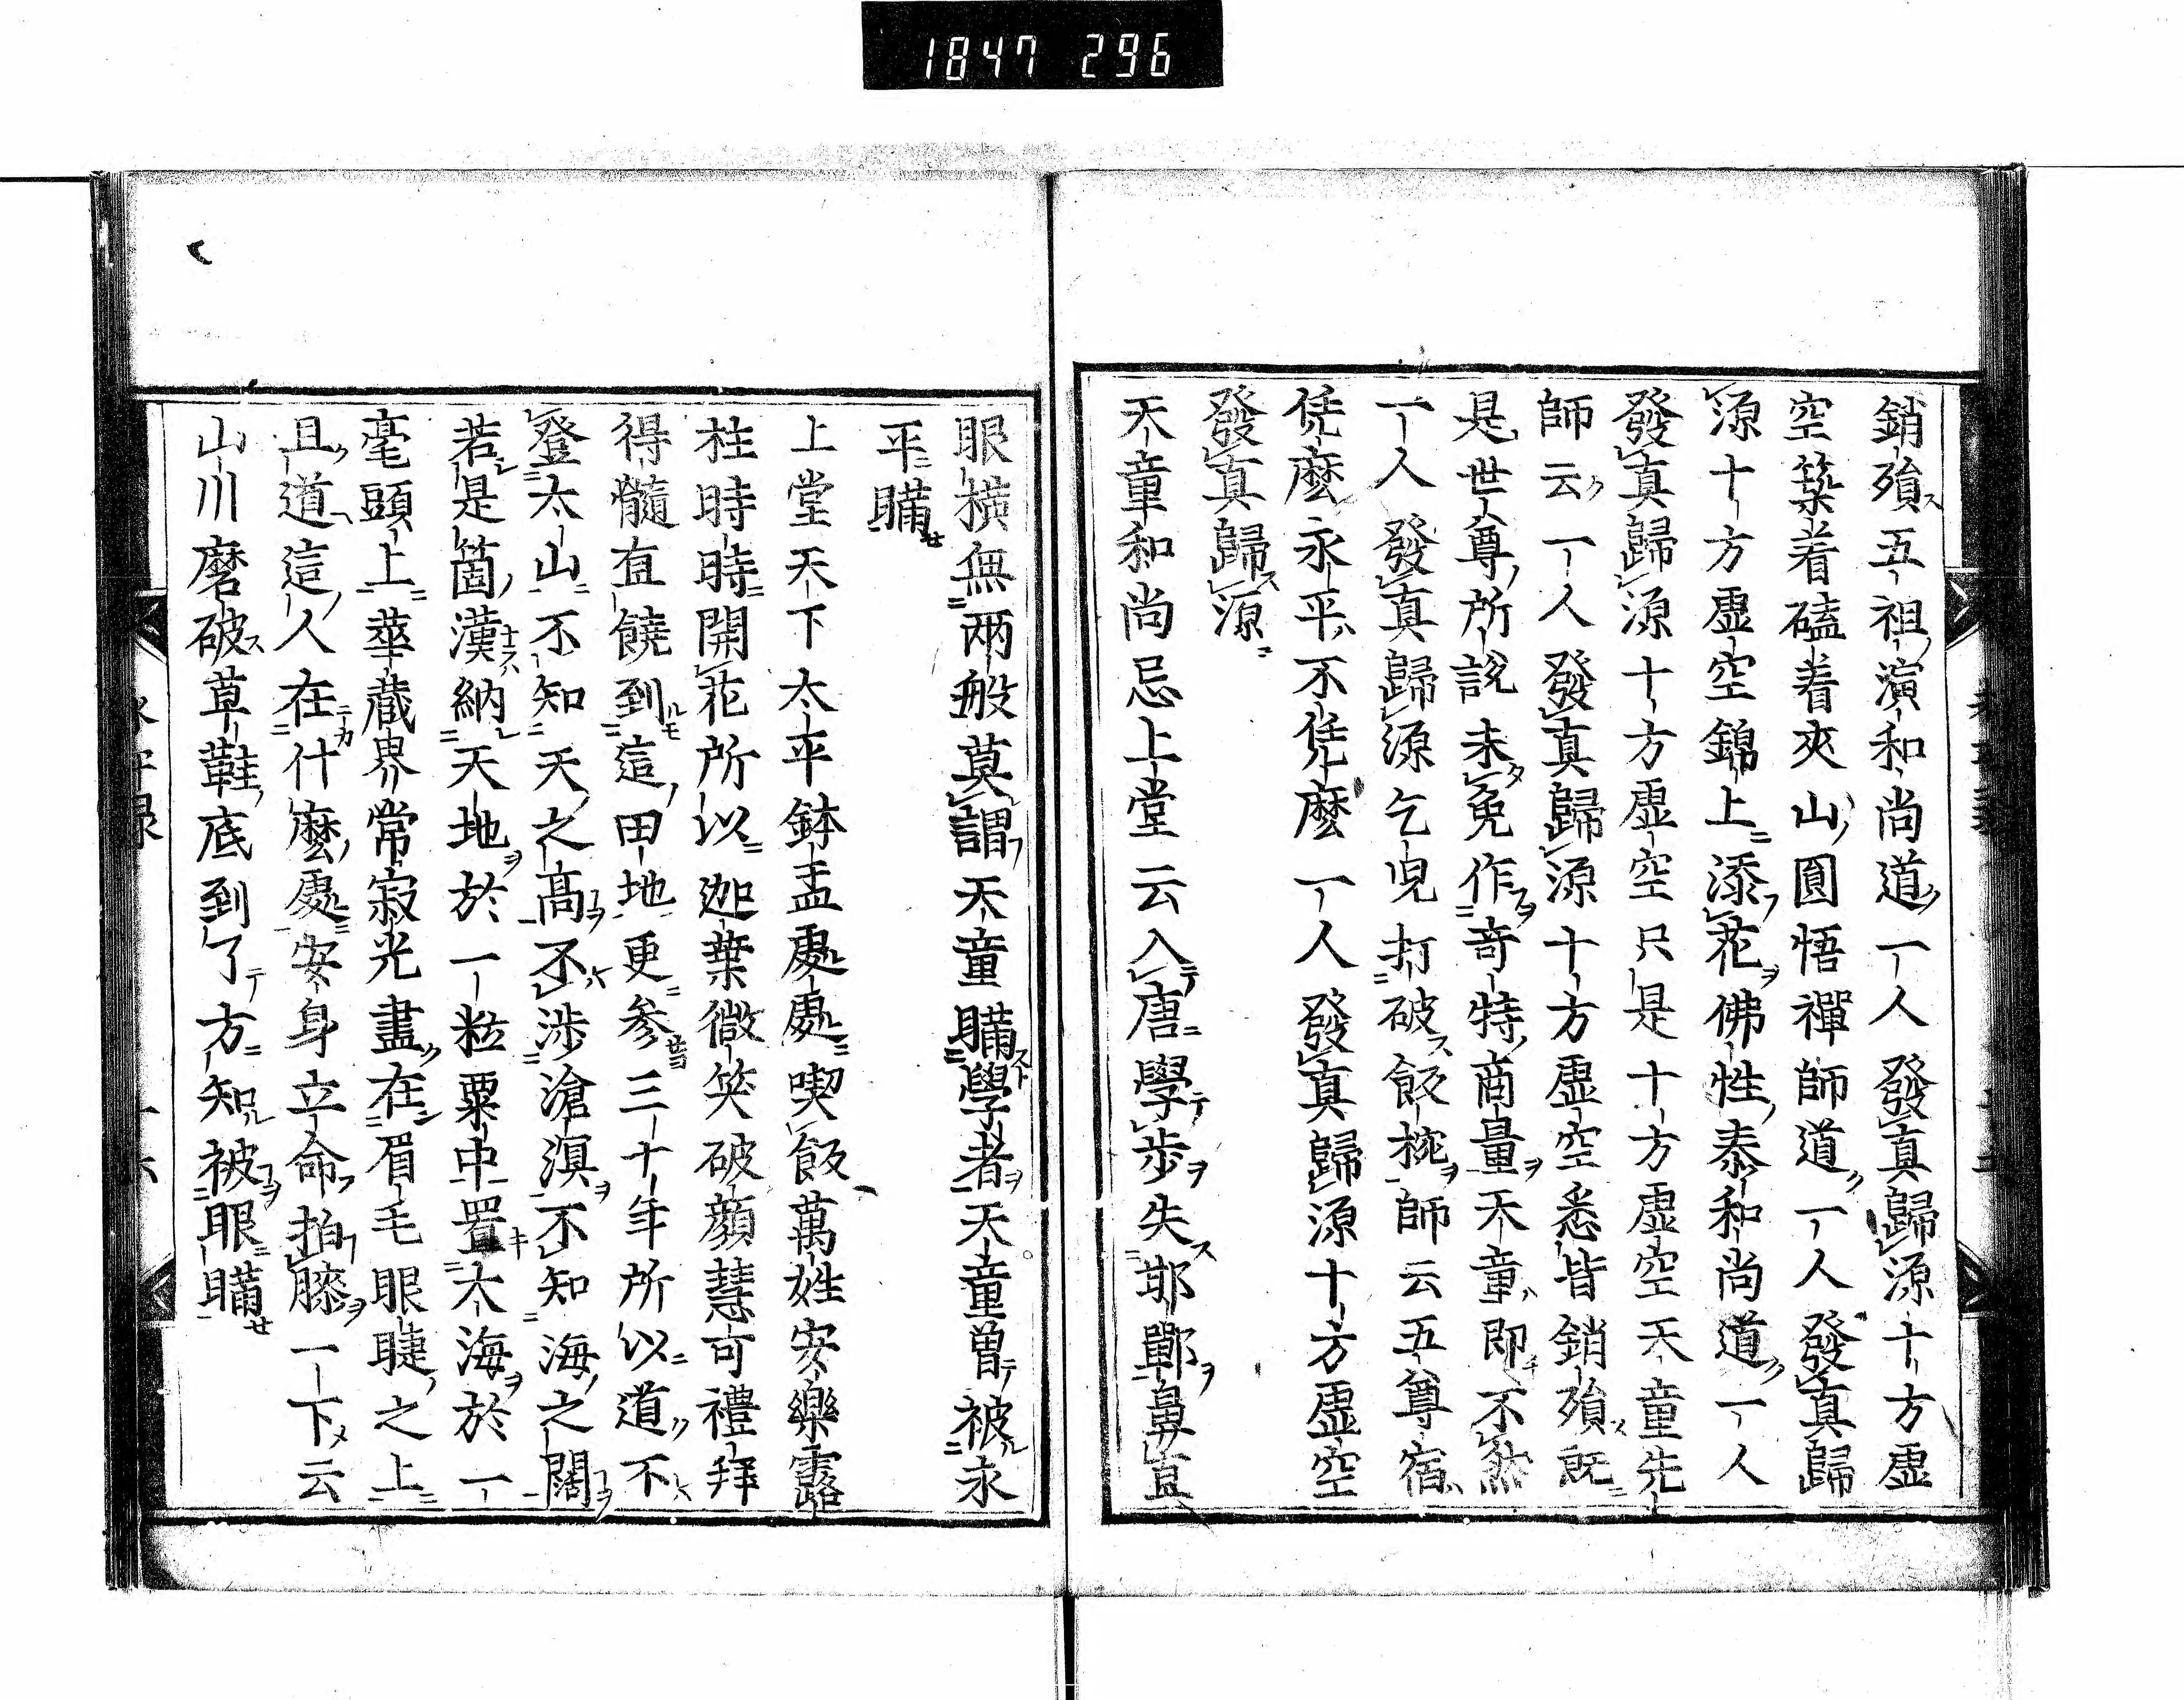 1847 296
銷殞五祖演和尚道一人發真歸源十方虛
空築着磕着夾山圓悟禪師道一人發真歸
源十方虛空錦上添花佛性泰和尚道一人
發真歸源十方虛空只是十方虛空天童先
師云一人發真歸源十方虛空悉皆銷殞既
是世尊所說未免作奇特商量天童即不然
一人發真歸源乞兒打破飯椀師云五尊宿
恁麼永平不恁麼一人發真歸源十方虛空
發真歸源
天童和尚忌上堂云入唐學步失邯鄲鼻直
眼橫無兩般莫謂天童瞞學者天童曾被永
平瞞
上堂天下太平鉢盂處處喫飯萬姓安樂露
柱時時開花所以迦葉微笑破顏慧可禮拜
得髓直饒到這田地更參三十年所以道不
登太山不知天之高不涉滄溟不知海之闊
若是箇漢納天地於一粒粟中置大海於一
毫頭上華藏界常寂光盡在眉毛眼睫之上
且道這人在什麼處安身立命拍膝一下云
山川磨破草鞋底到了方知被眼瞞
永平録